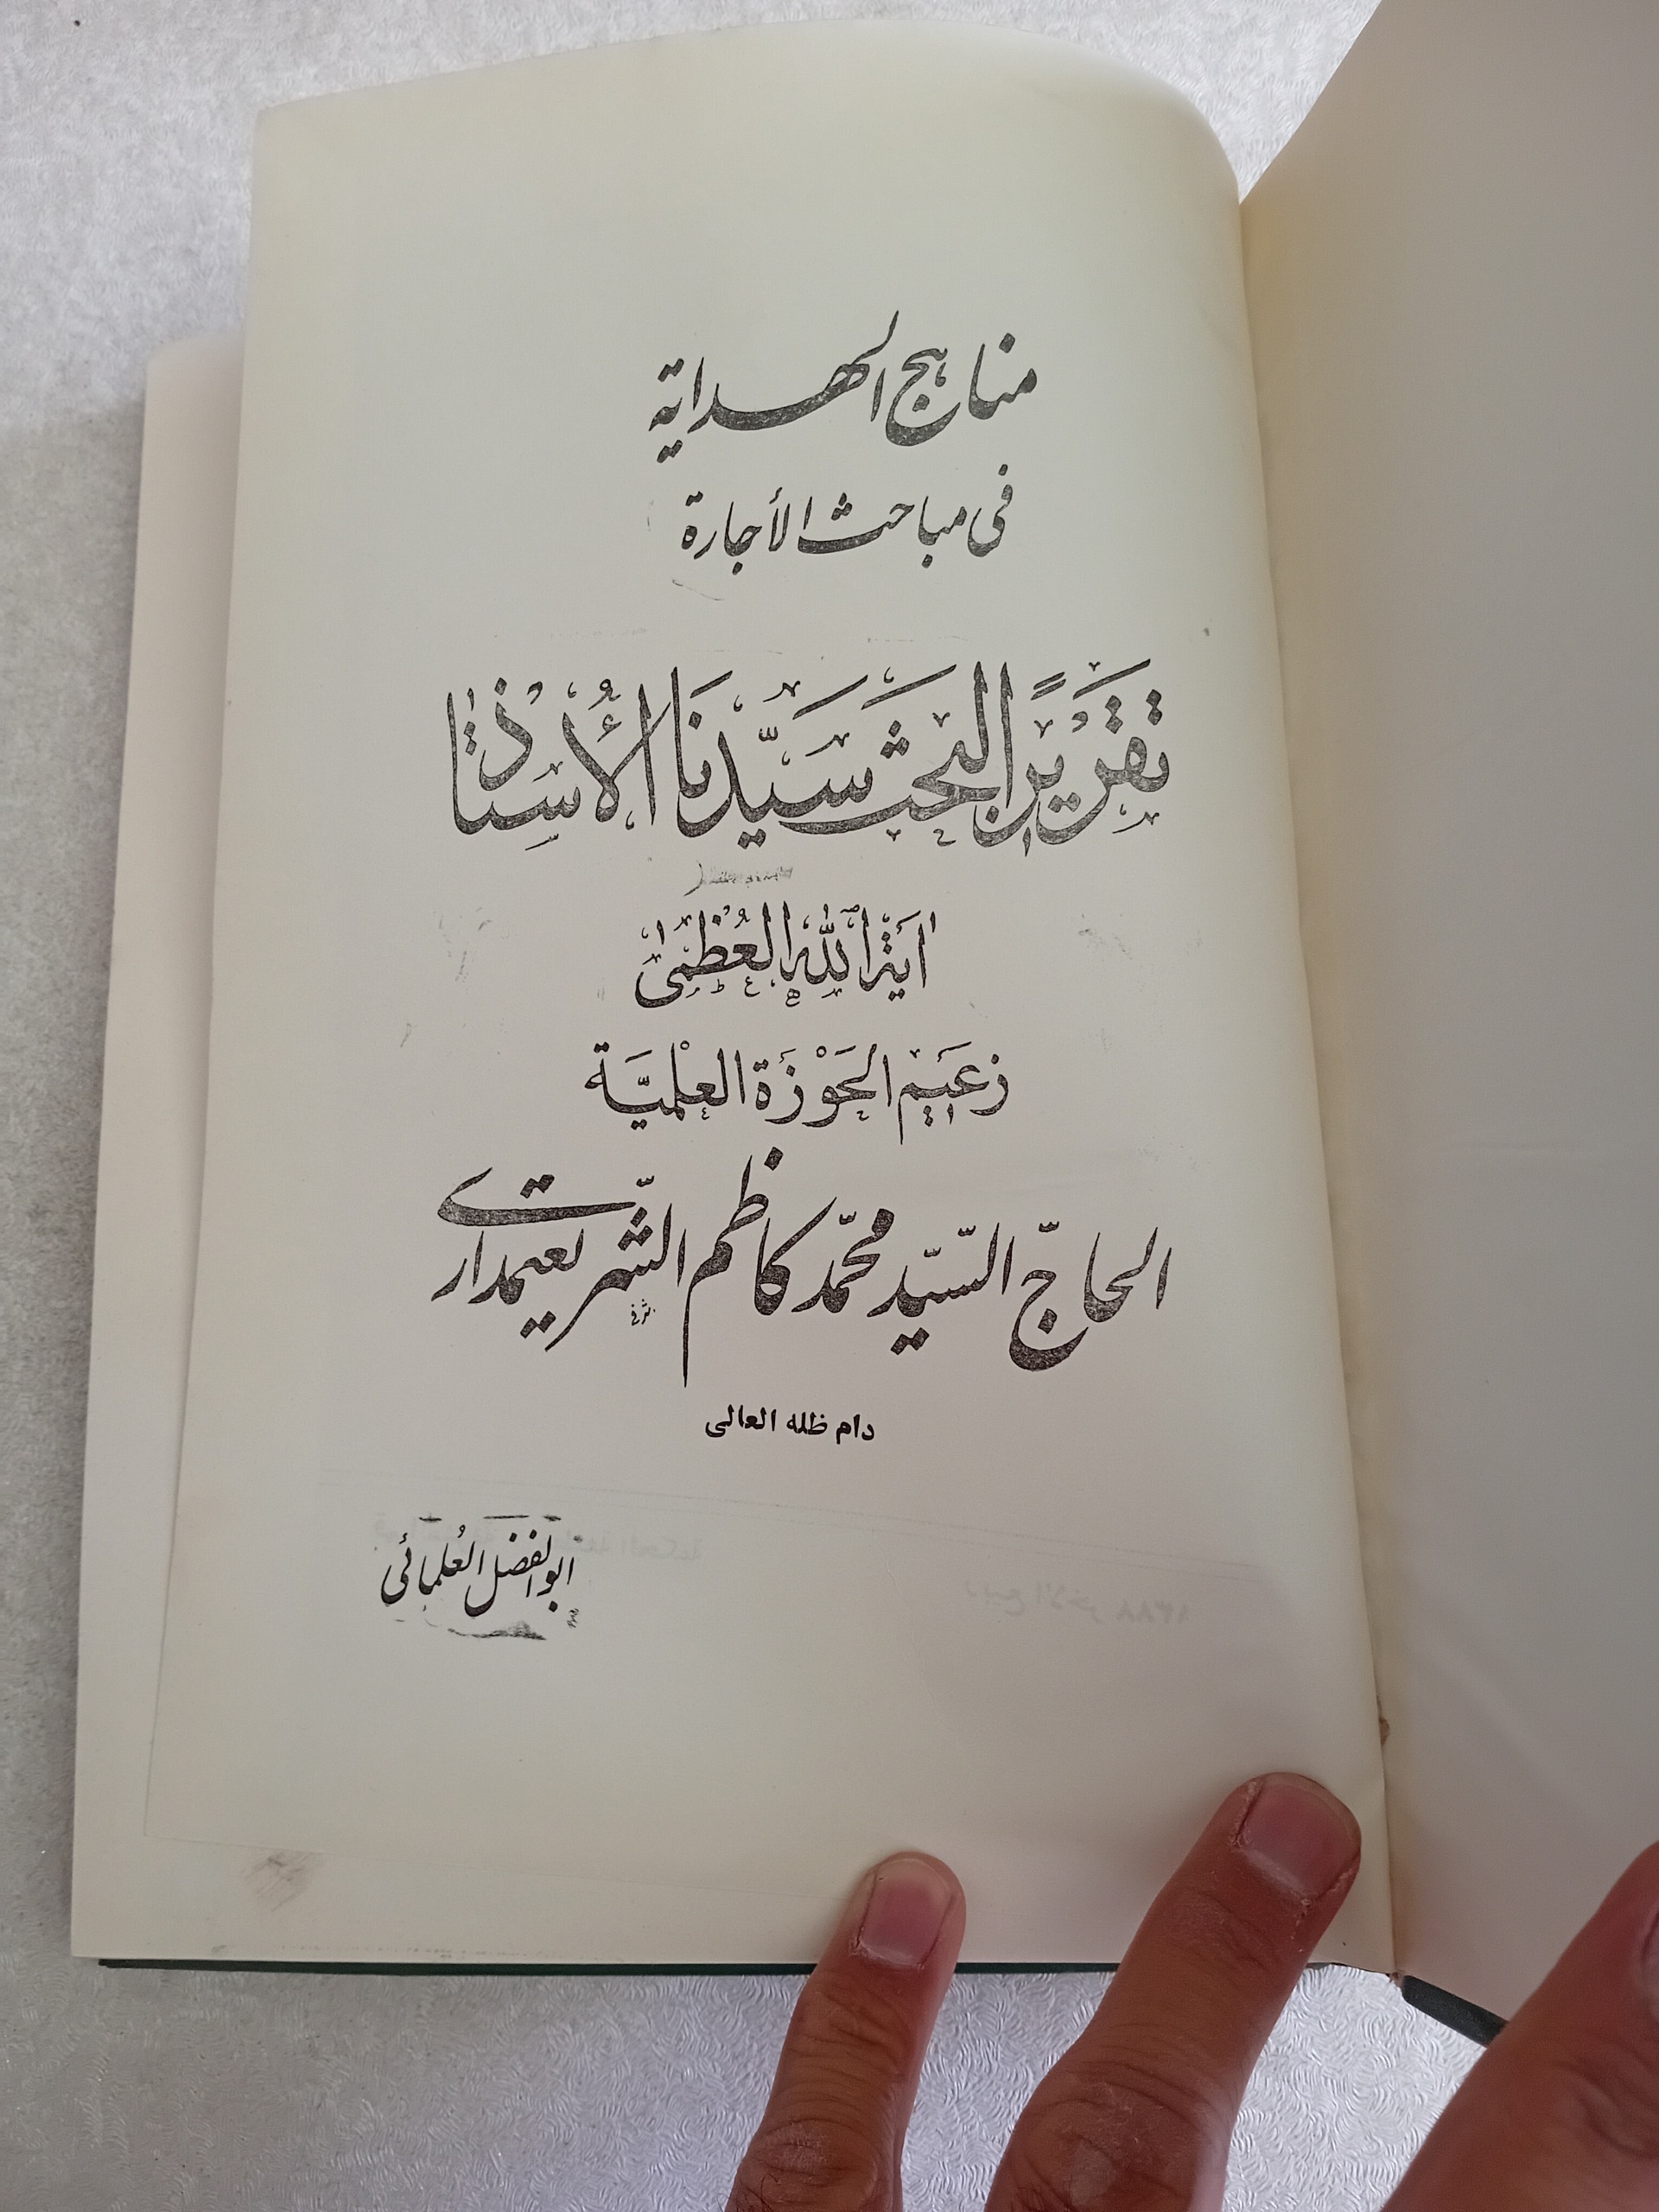 مناهج الهداية
فى مباحث الأجارة
تَقْرِيرًا لِبَحْثِ سَيِّدِنَا الْأُسْتَاذِ
ايَةِ اللهِ الْعُظْمىٰ
زَعيم الحَوْزَة العِلْميَّة
الحاجّ السّيّد محمّد كاظم الشّريعتمدارى
دام ظله العالى
ابوالفضل العُلمائى
ربيع الاخر ١٣٨٨